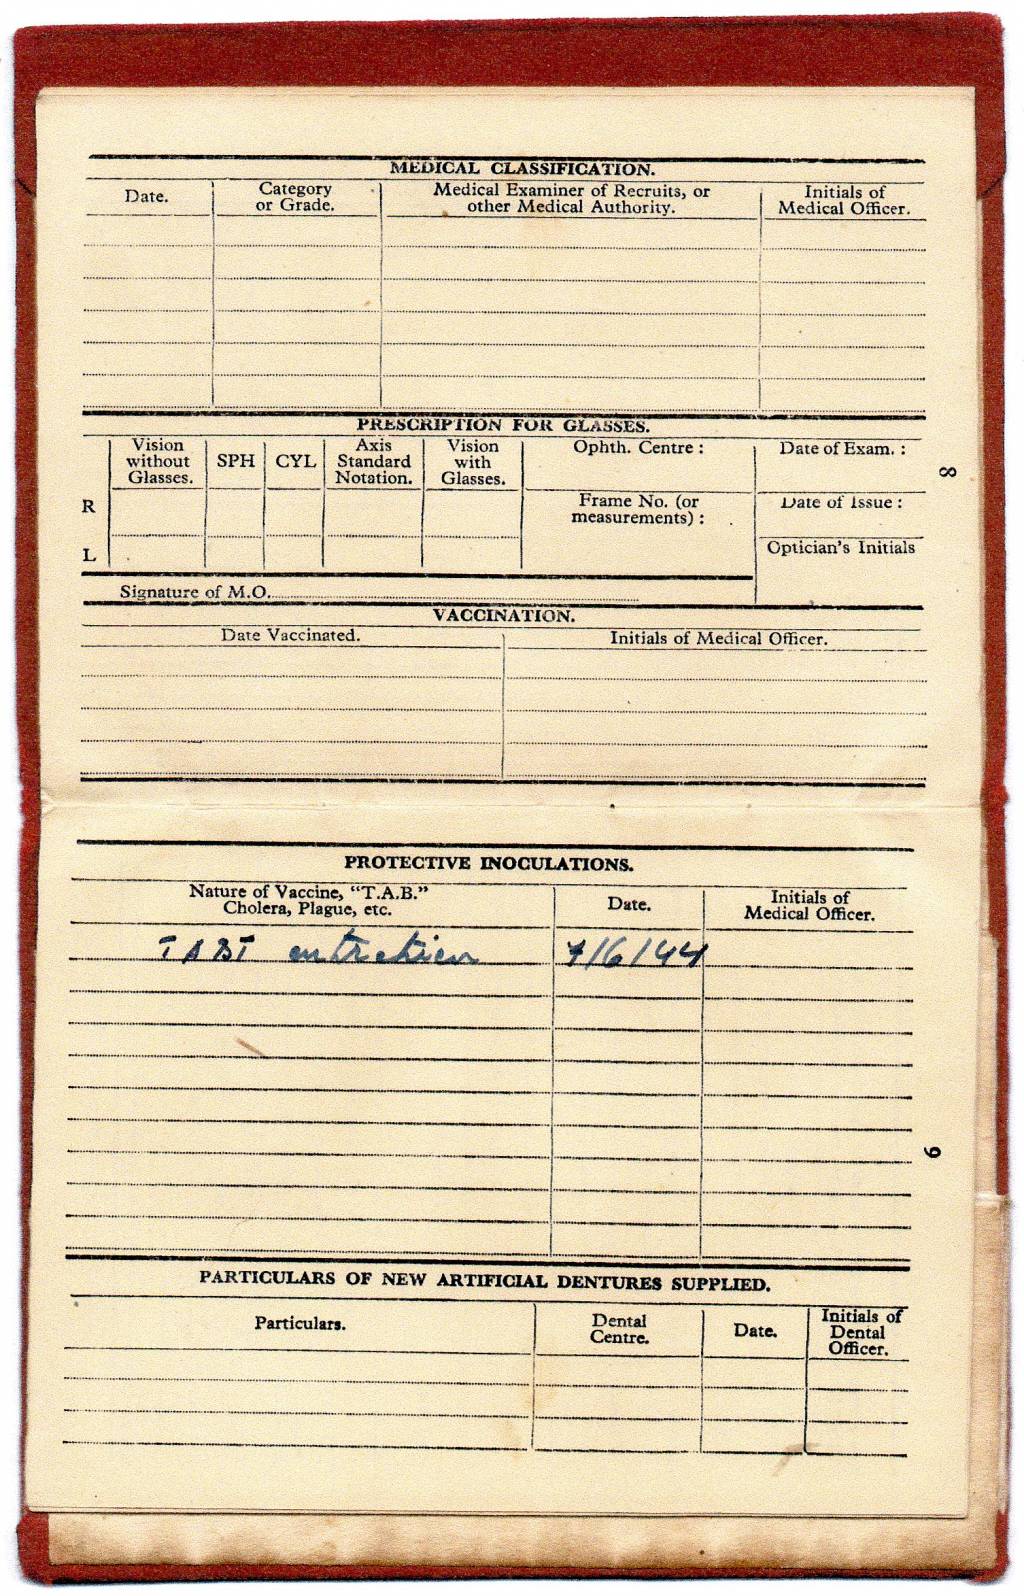 MEDICAL CLASSIFICATION.
Date.
Category or Grade.
Medical Examiner of Recruits, or other Medical Authority.
Initials of Medical Officer.
PRESCRIPTION FOR GLASSES.
Vision without Glasses.
SPH
CYL
Axis Standard Notation.
Vision with Glasses.
Ophth. Centre :
Date of Exam. :
8
R
Frame No. (or measurements) :
Date of Issue :
L
Optician's Initials
Signature of M.O.
VACCINATION.
Date Vaccinated.
Initials of Medical Officer.
PROTECTIVE INOCULATIONS.
Nature of Vaccine, “T.A.B.” Cholera, Plague, etc.
Date.
Initials of Medical Officer.
TABT entretien 7/6/44
9
PARTICULARS OF NEW ARTIFICIAL DENTURES SUPPLIED.
Particulars.
Dental Centre.
Date.
Initials of Dental Officer.